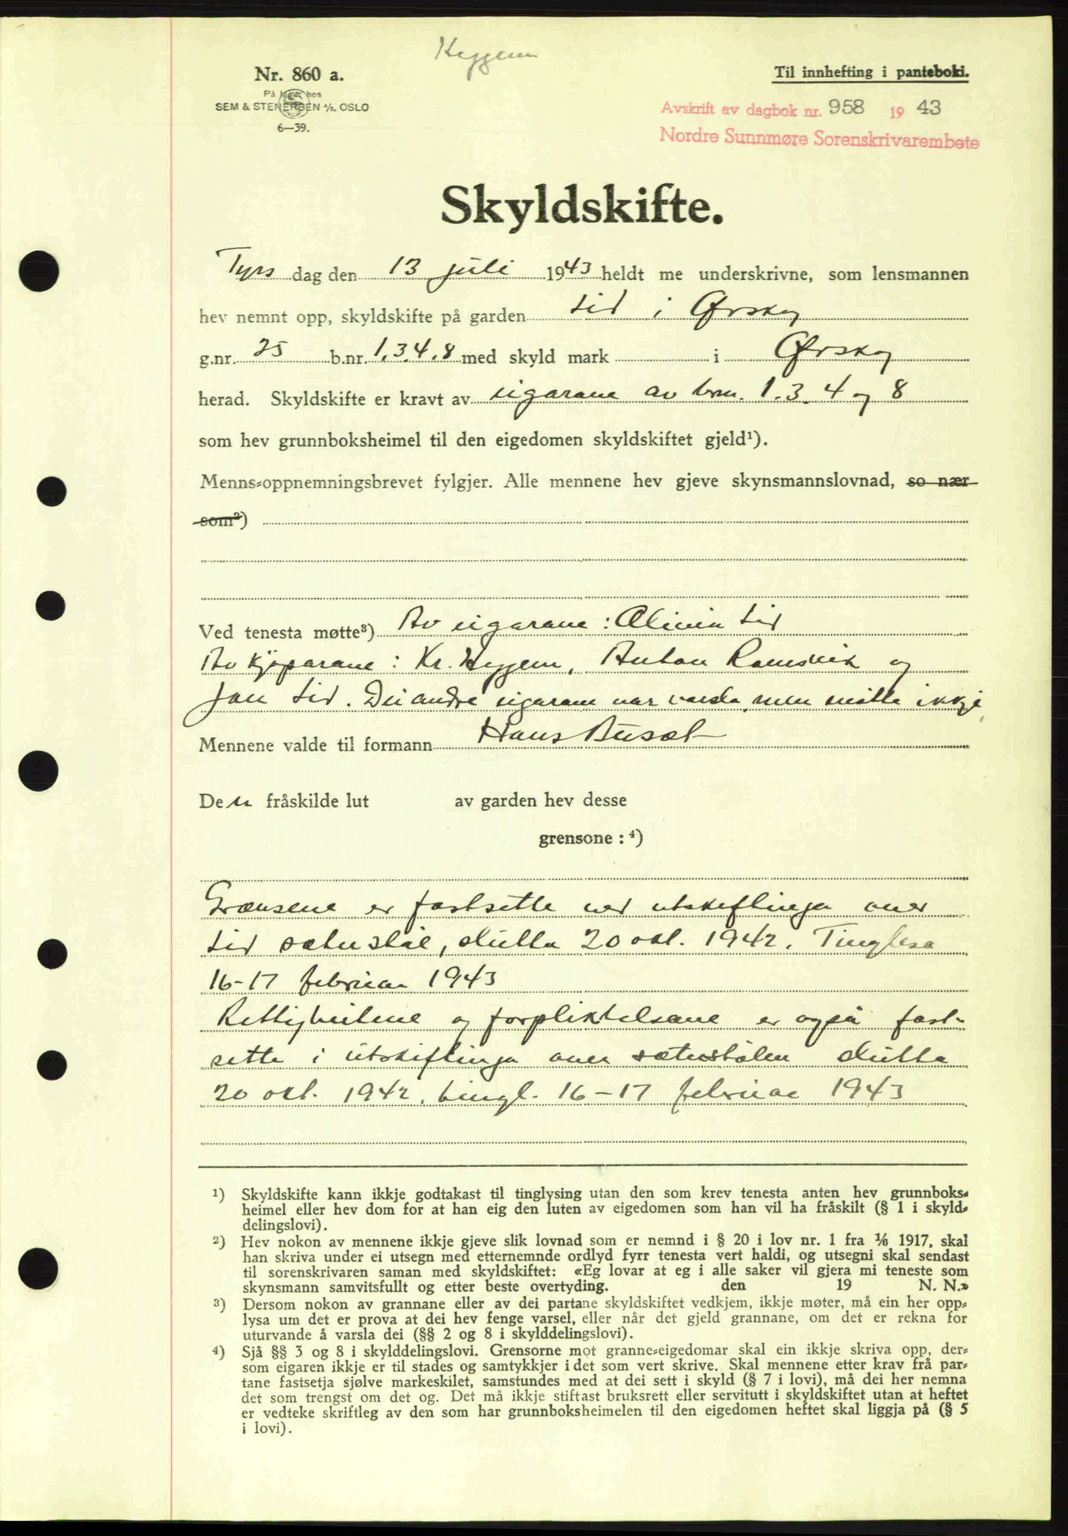 Kyggem
Nr. 860 a.
På lager hos
SEM & STENERSEN A/S, OSLO
6—39.
Til innhefting i panteboki.
Avskrift av dagbok nr. 958 19 43
Nordre Sunnmøre Sorenskrivarembete
Skyldskifte.
Tyrs dag den 13 juli 1943 heldt me underskrivne, som lensmannen
hev nemnt opp, skyldskifte på garden Lid i Ørskog
g.nr. 25 b.nr. 1.3.4.8 med skyld mark i Ørskog
herad. Skyldskifte er kravt av eigarane av brn. 1.3.4 og 8
som hev grunnboksheimel til den eigedomen skyldskiftet gjeld¹).
Menns-oppnemningsbrevet fylgjer. Alle mennene hev gjeve skynsmannslovnad, so nær
som²)
Ved tenesta møtte³) Av eigarane: Olivin Lid
Av kjøparane: Kr. Hyggem, Anton Ramsvik og
Jan Lid. Dei andre eigarane var varsla, men møtte ikkje
Mennene valde til formann Hans Busæt
De n fråskilde lut av garden hev desse
grensone: ⁴)
Grensene er fastsette ved utskiftinga over
Lid sæterstøl, slutta 20 okt. 1942. Tinglesa
16-17 februar 1943
Rettigheitene og forpliktelsane er også fast-
sette i utskiftinga over sæterstølen slutta
20 okt. 1942, tingl. 16-17 februar 1943
¹) Skyldskifte kann ikkje godtakast til tinglysing utan den som krev tenesta anten hev grunnboks-
heimel eller hev dom for at han eig den luten av eigedomen som han vil ha fråskilt (§ 1 i skyld-
delingslovi).
²) Hev nokon av mennene ikkje gjeve slik lovnad som er nemnd i § 20 i lov nr. 1 fra 1/6 1917, skal
han skriva under ei utsegn med etternemnde ordlyd fyrr tenesta vert haldi, og utsegni skal sendast
til sorenskrivaren saman med skyldskiftet: «Eg lovar at eg i alle saker vil gjera mi teneste som
skynsmann samvitsfullt og etter beste overtyding. den 19 N. N.»
³) Dersom nokon av grannane eller av dei partane skyldskiftet vedkjem, ikkje møter, må ein her opp-
lysa um det er prova at dei hev fenge varsel, eller når det gjeld grannane, om det er rekna for
uturvande å varsla dei (§§ 2 og 8 i skylddelingslovi).
⁴) Sjå §§ 3 og 8 i skylddelingslovi. Grensorne mot granne-eigedomar skal ein ikkje skriva opp, der-
som eigaren ikkje er til stades og samtykkjer i det som vert skrive. Skal mennene etter krav frå par-
tane fastsetja sjølve markeskilet, samstundes med at dei sett i skyld (§ 7 i lovi), må dei her nemna
det som trengst om det og. Det må ikkje stiftast bruksrett eller servitutt i skyldskiftet utan at heftet
er vedteke skriftleg av den som har grunnboksheimelen til den eigedomen heftet skal liggja på (§ 5
i lovi).